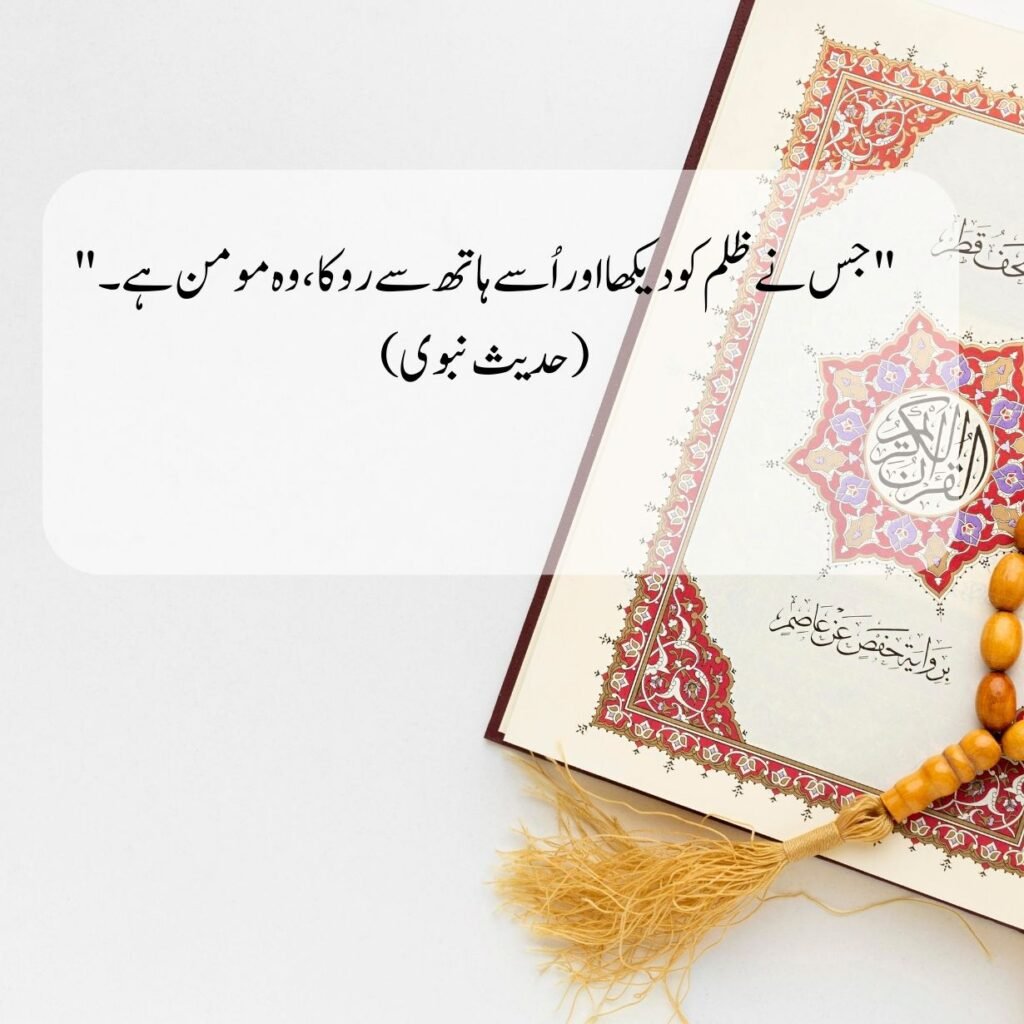 "جس نے ظلم کو دیکھا اور اُسے ہاتھ سے روکا، وہ مومن ہے۔"
(حدیث نبوی)
القرآن الكريم
برواية حفص عن عاصم